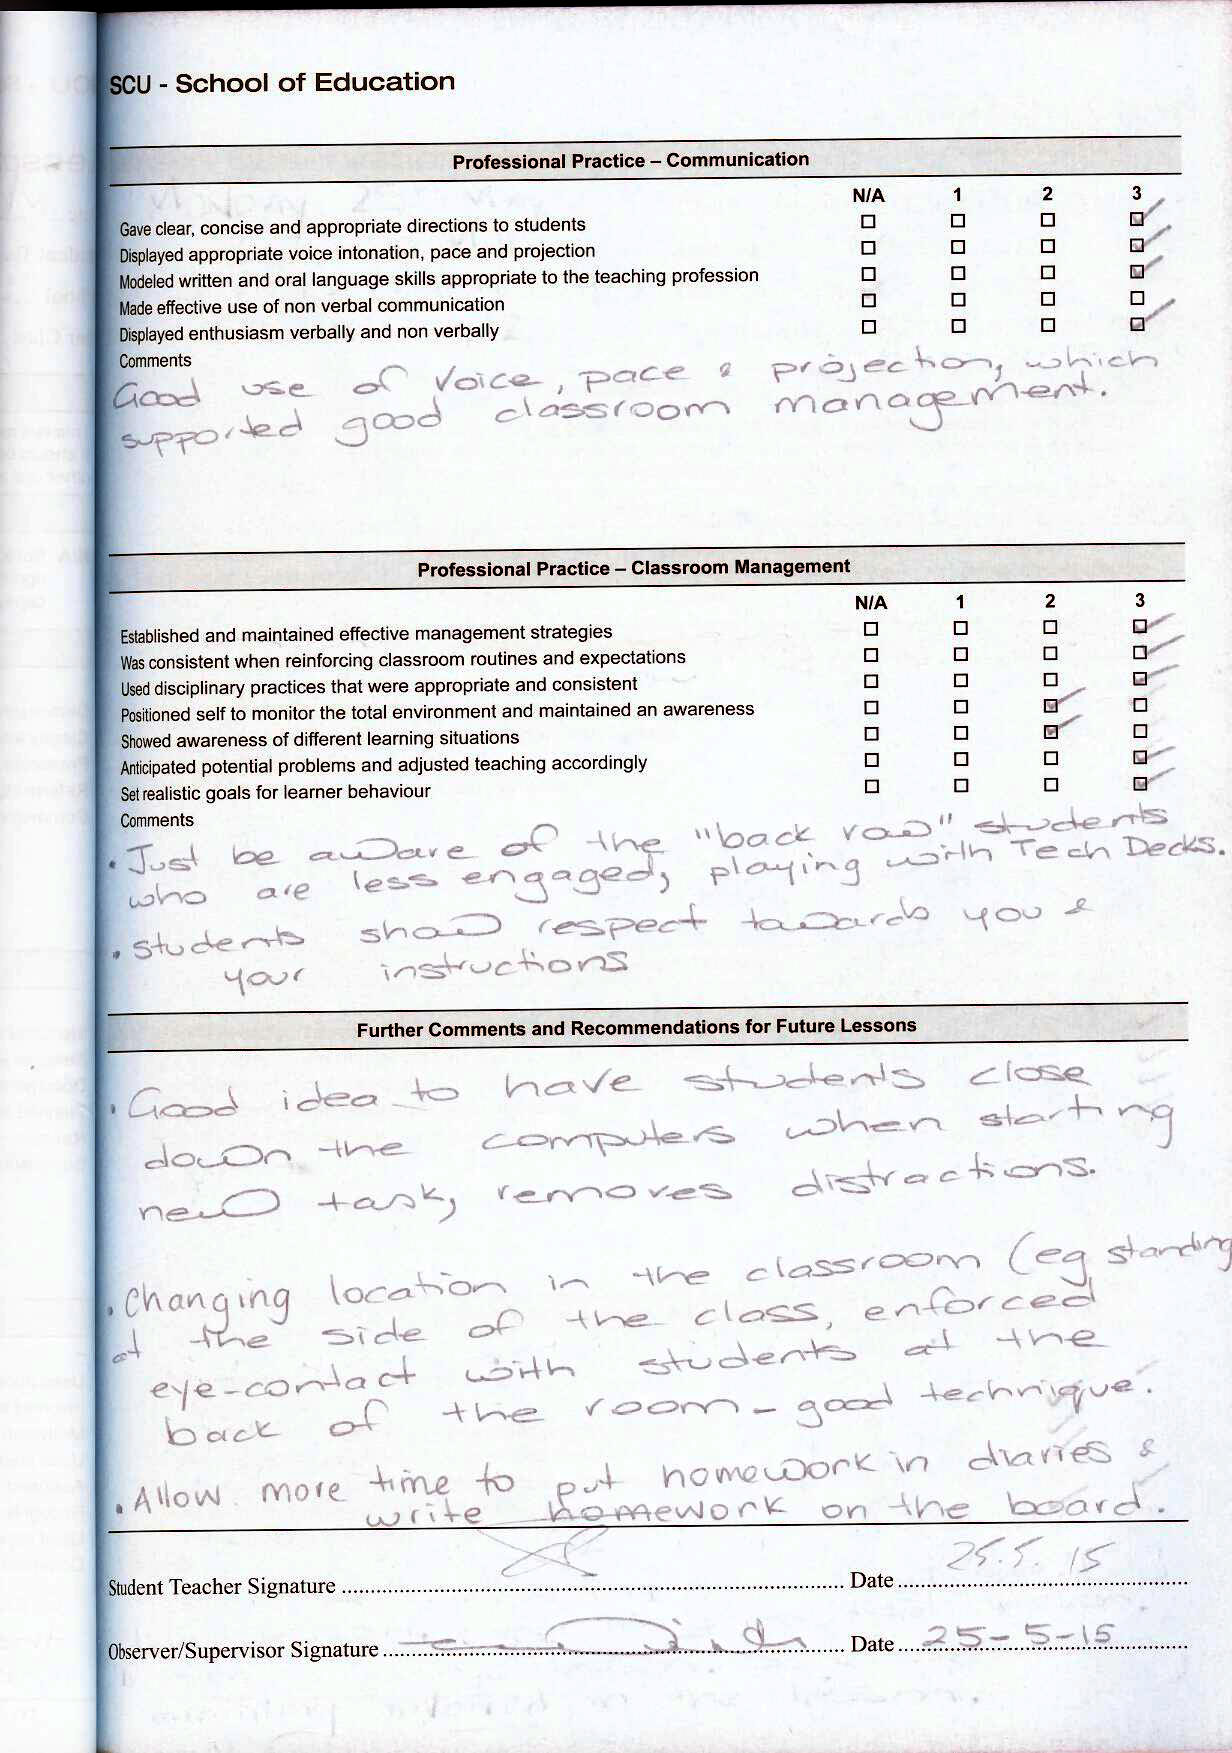 SCU - School of Education
Professional Practice – Communication
N/A 1 2 3
Gave clear, concise and appropriate directions to students
Displayed appropriate voice intonation, pace and projection
Modeled written and oral language skills appropriate to the teaching profession
Made effective use of non verbal communication
Displayed enthusiasm verbally and non verbally
Comments
Good use of voice, pace & projection, which
supported good classroom management.
Professional Practice – Classroom Management
N/A 1 2 3
Established and maintained effective management strategies
Was consistent when reinforcing classroom routines and expectations
Used disciplinary practices that were appropriate and consistent
Positioned self to monitor the total environment and maintained an awareness
Showed awareness of different learning situations
Anticipated potential problems and adjusted teaching accordingly
Set realistic goals for learner behaviour
Comments
• Just be aware of the "back row" students
who are less engaged, playing with Tech Decks.
• students show respect towards you &
your instructions
Further Comments and Recommendations for Future Lessons
• Good idea to have students close
down the computers when starting
new task, removes distractions.
• Changing location in the classroom (eg standing
at the side of the class, enforced
eye-contact with students at the
back of the room - good technique.
• Allow more time to put homework in diaries &
write homework on the board.
Student Teacher Signature Date 25.5.15
Observer/Supervisor Signature Date 25-5-15